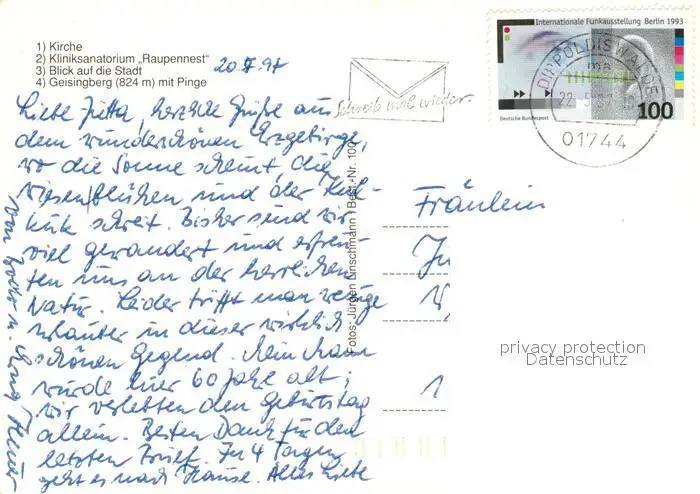 1) Kirche
2) Kliniksanatorium „Raupennest"
3) Blick auf die Stadt
4) Geisingberg (824 m) mit Pinge
Liebe Jutta, herzliche Grüße aus
dem wunderschönen Erzgebirge,
wo die Sonne scheint, die
Wiesen blühen und der Kuk-
kuk schreit. Bisher sind wir
viel gewandert und erfreu-
ten uns an der herrlichen
Natur. Leider trifft man wenige
Urlauber in dieser wirklich
schönen Gegend. Mein Mann
wurde hier 60 Jahre alt;
wir verlebten den Geburtstag
allein. Besten Dank für den
letzten Brief. In 4 Tagen
geht es nach Hause. Alles Liebe
von
u.
Schreib mal wieder.
Fotos: Jürgen Linschmann / Best.-Nr. 100
Internationale Funkausstellung Berlin 1993
Deutsche Bundespost
100
DIPPOLDISWALDE
ma
01744
Fräulein
privacy protection
Datenschutz